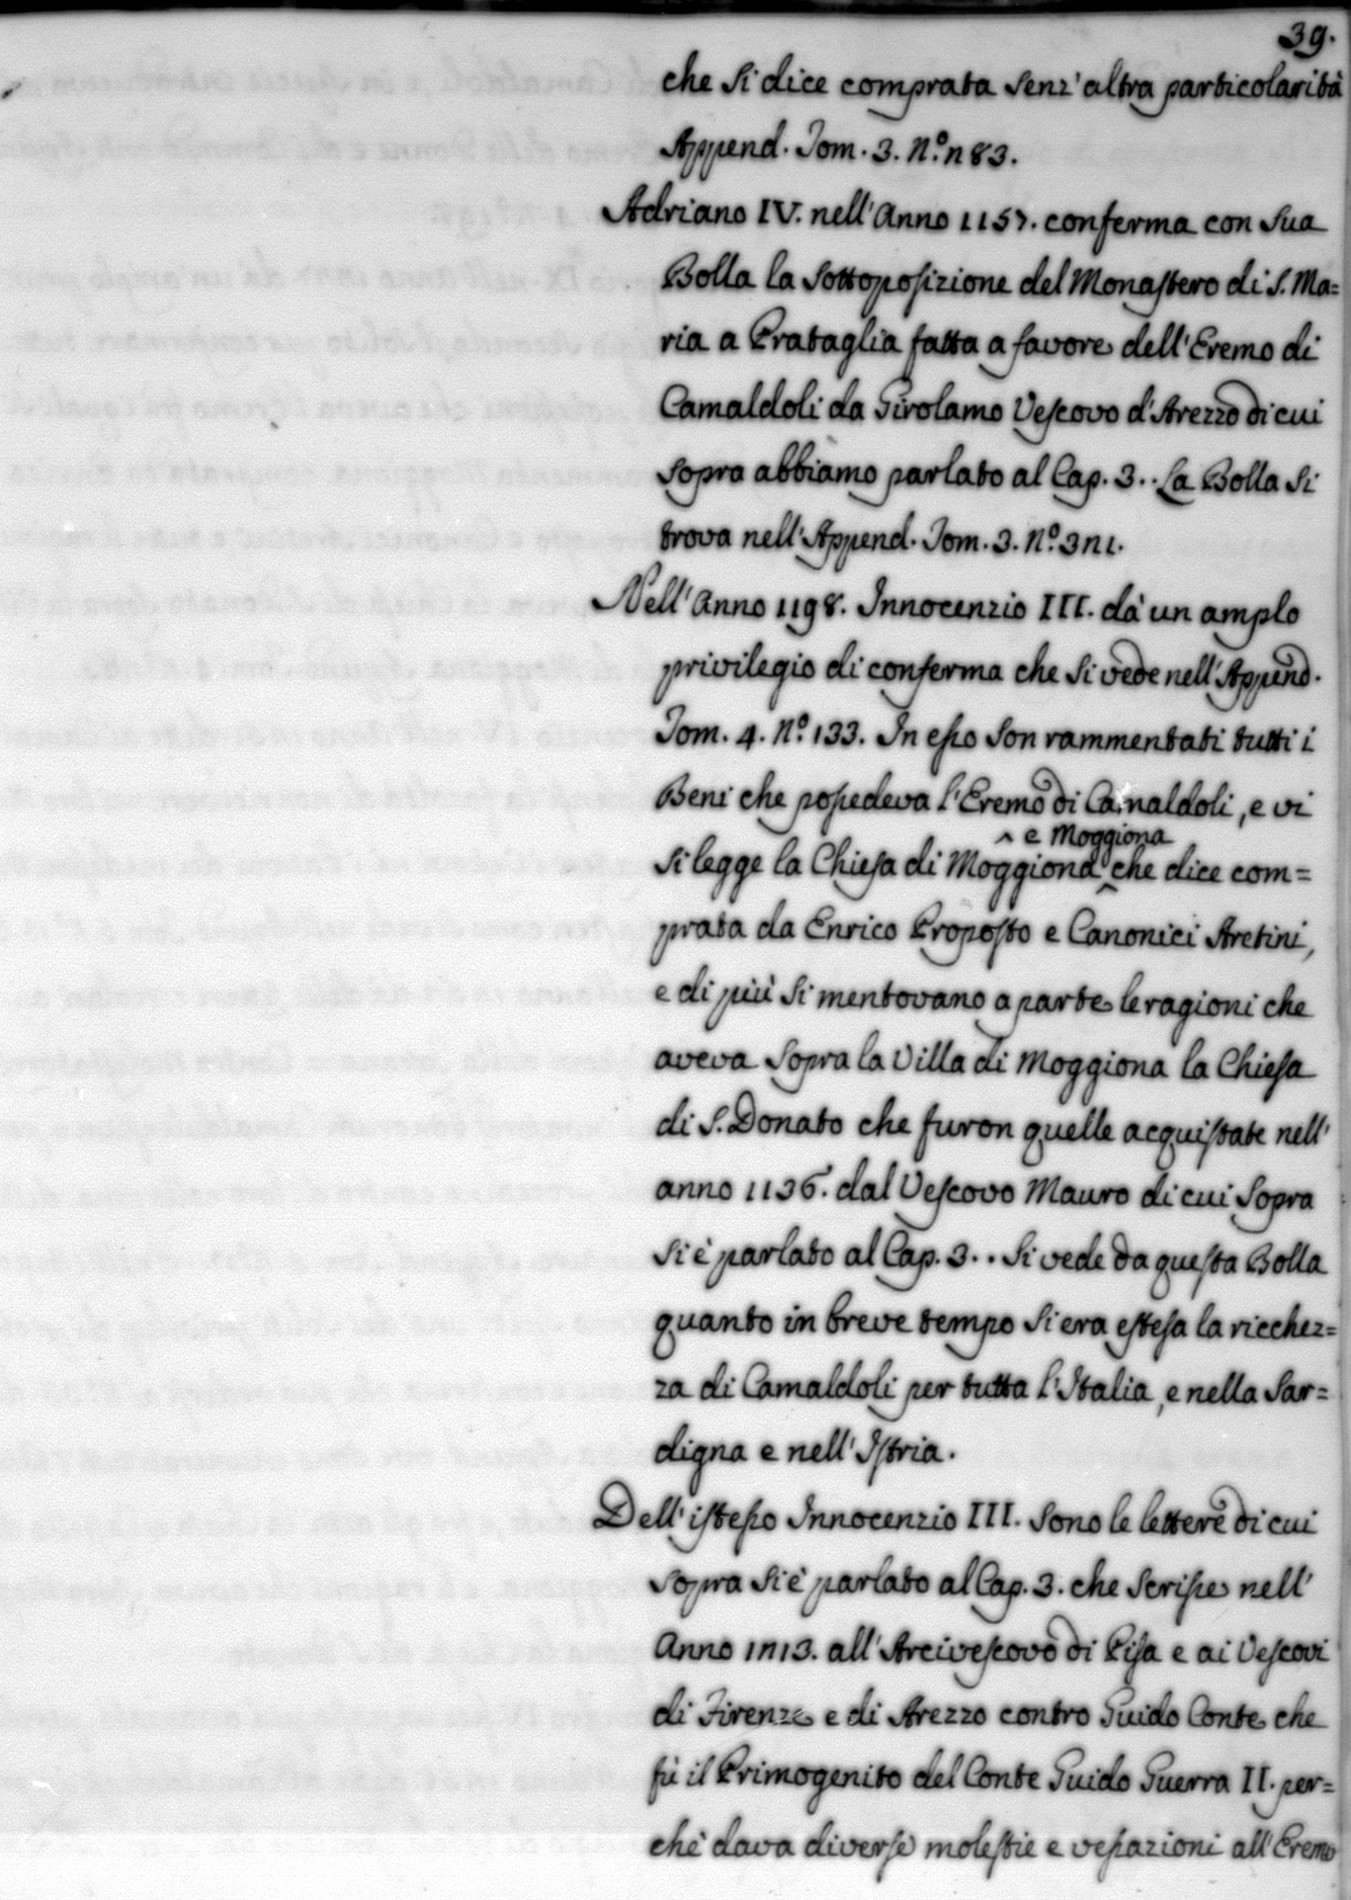 39.
che si dice comprata senz'altra particolarità
Append. Tom. 3. N.º 283.
Adriano IV. nell'Anno 1157. conferma con sua
Bolla la sottoposizione del Monastero di S. Ma=
ria a Prataglia fatta a favore dell'Eremo di
Camaldoli da Girolamo Vescovo d'Arezzo di cui
sopra abbiamo parlato al Cap. 3.. La Bolla si
trova nell'Append. Tom. 3. N.º 321.
Nell'Anno 1198. Innocenzio III. dà un amplo
privilegio di conferma che si vede nell'Append.
Tom. 4. N.º 133. In esso son rammentati tutti i
Beni che possedeva l'Eremo di Camaldoli, e vi
^ e Moggiona
si legge la Chiesa di Moggiona ^ che dice com=
prata da Enrico Proposto e Canonici Aretini,
e di più si mentovano a parte le ragioni che
aveva sopra la Villa di Moggiona la Chiesa
di S. Donato che furon quelle acquistate nell'
anno 1136. dal Vescovo Mauro di cui sopra
si è parlato al Cap. 3.. Si vede da questa Bolla
quanto in breve tempo si era estesa la ricchez=
za di Camaldoli per tutta l'Italia, e nella Sar=
digna e nell'Istria.
Dell'istesso Innocenzio III. sono le lettere di cui
sopra si è parlato al Cap. 3. che scrisse nell'
Anno 1213. all'Arcivescovo di Pisa e ai Vescovi
di Firenze e di Arezzo contro Guido Conte che
fù il Primogenito del Conte Guido Guerra II. per=
chè dava diverse molestie e vessazioni all'Eremo